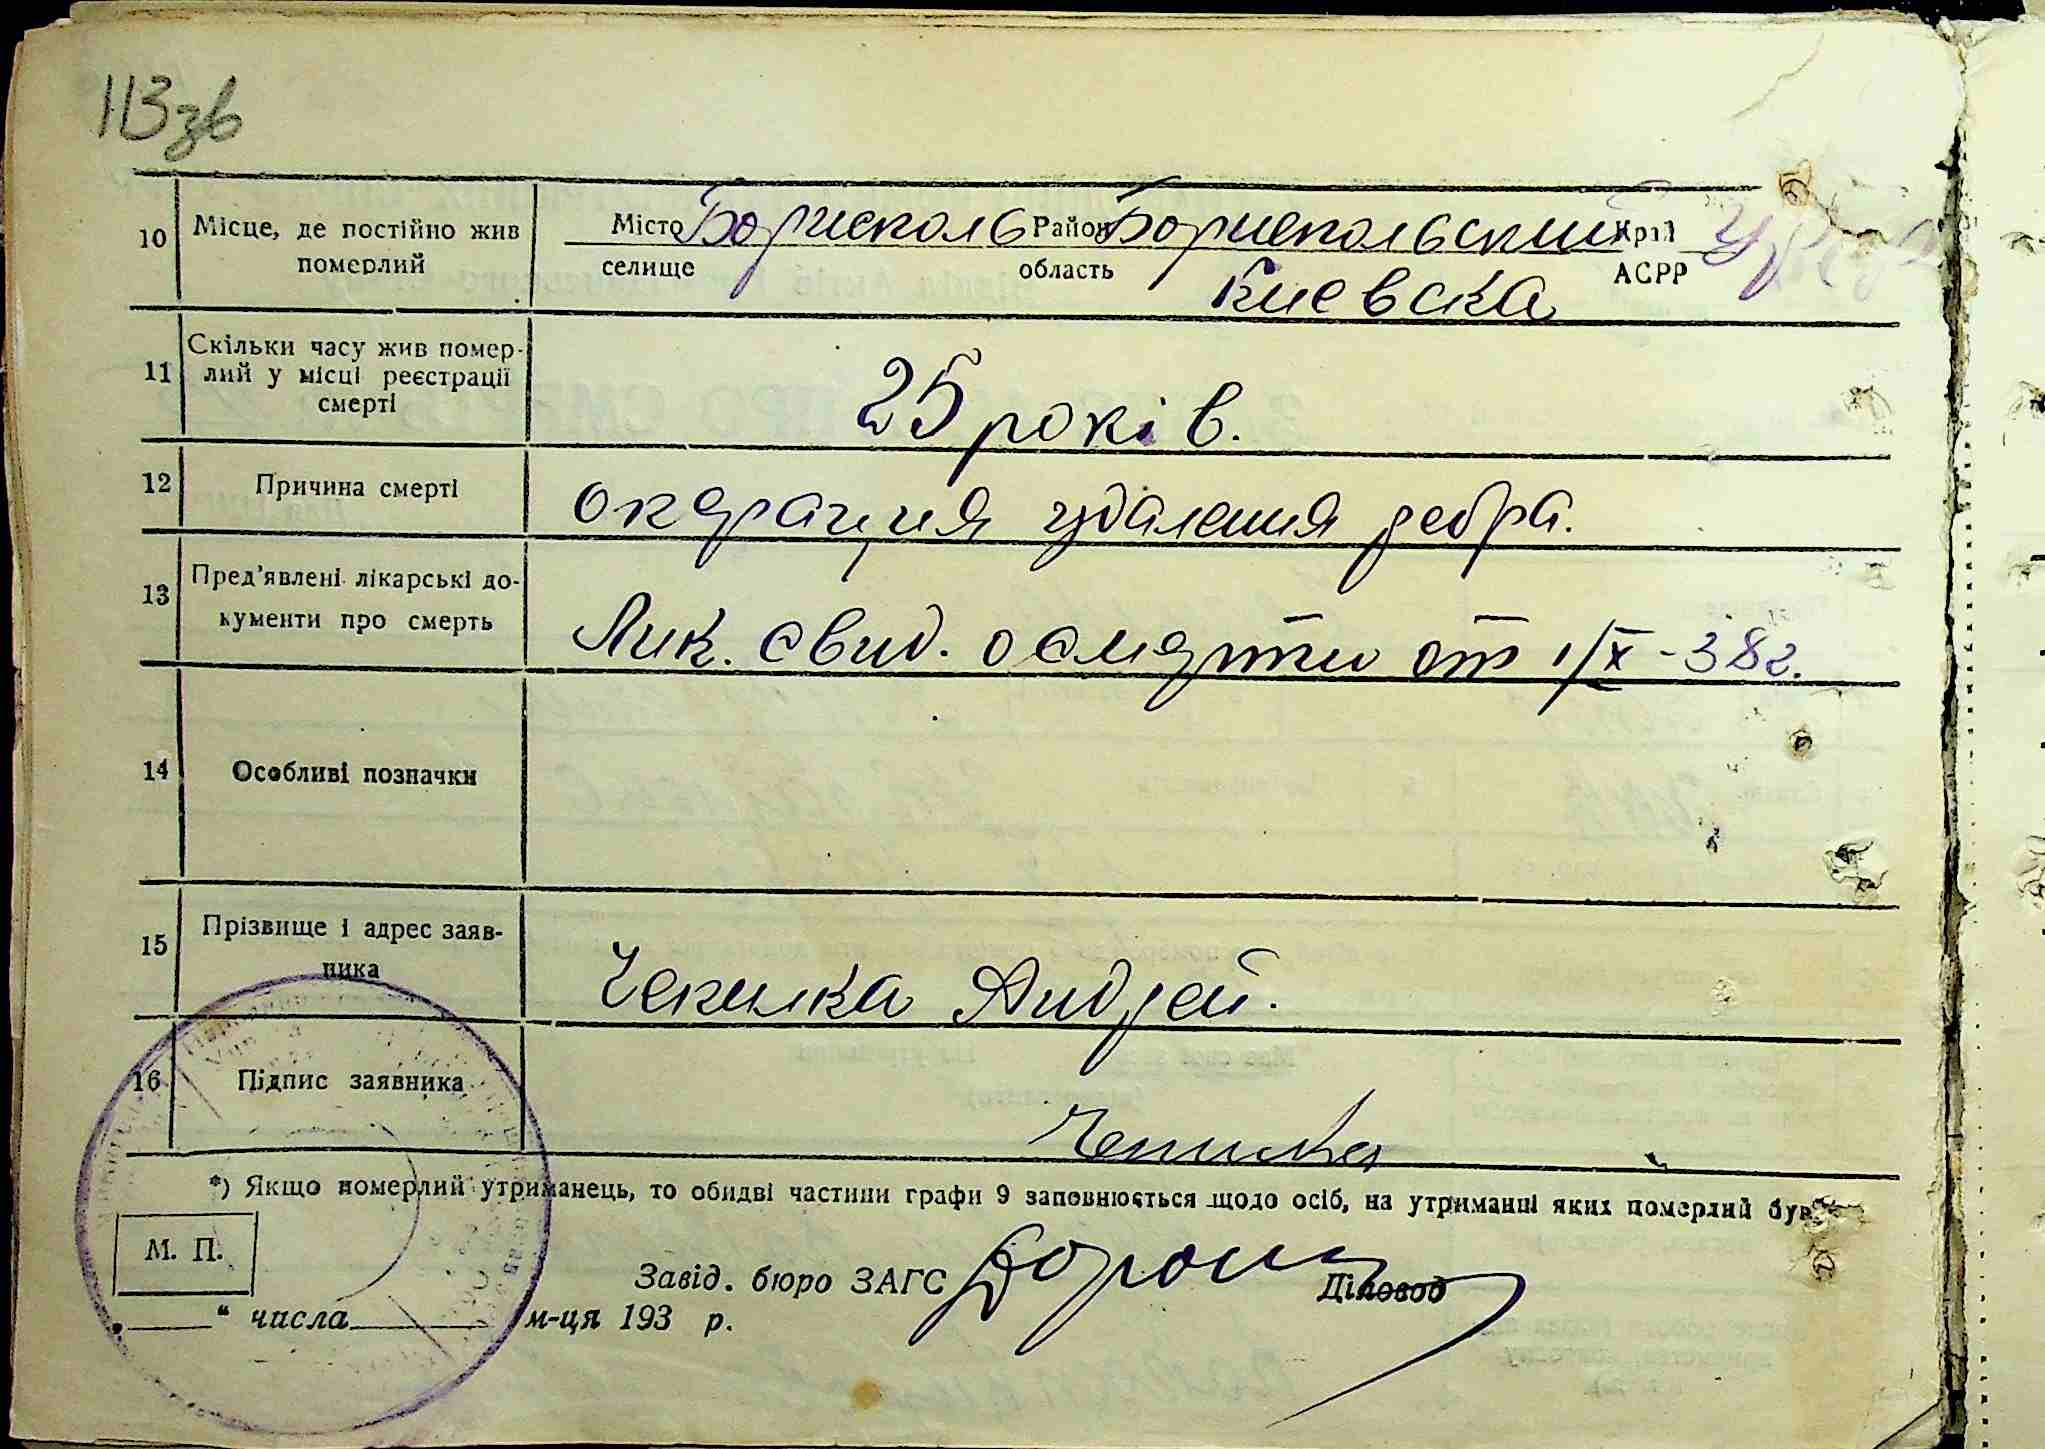 113зв
10 Місце, де постійно жив Місто Борисполь Район Бориспольский Край
померлий селище область Киевска АСРР
11 Скільки часу жив помер-
лий у місці реєстрації 25 років.
смерті
12 Причина смерті операция удаления ребра.
13 Пред'явлені лікарські до-
кументи про смерть Лик. свид. о смерти от 1/X-38г.
14 Особливі позначки
15 Прізвище і адрес заяв-
ника Чепилка Андрей.
16 Підпис заявника Чепилка
*) Якщо померлий утриманець, то обидві частини графи 9 заповнюється щодо осіб, на утриманні яких померлий був.
М. П.
Завід. бюро ЗАГС Діловод
„ “ числа м-ця 193 р.